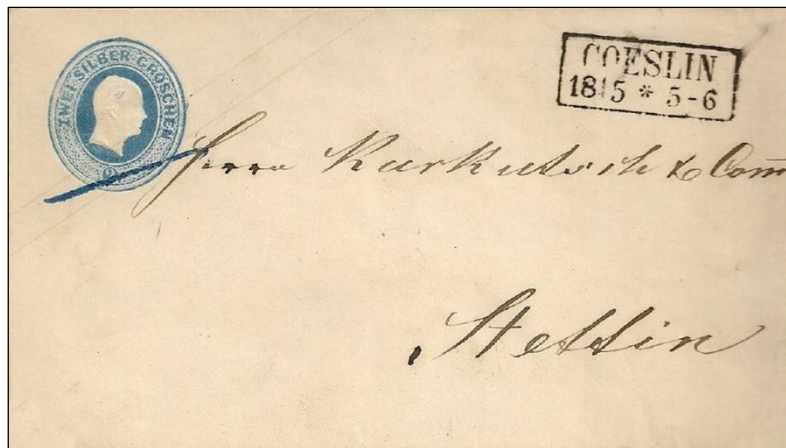 ZWEI SILBER GROSCHEN
2
COESLIN
18 5 * 5-6
Herrn Karkutsch & Com̅
Stettin